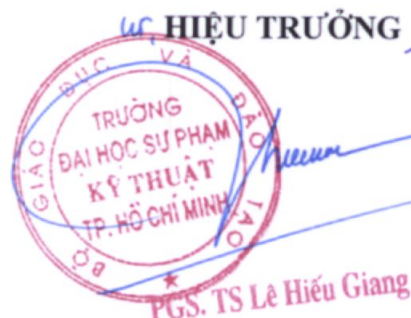 HIỆU TRƯỞNG
BỘ GIÁO DỤC VÀ ĐÀO TẠO
TRƯỜNG
ĐẠI HỌC SƯ PHẠM
KỸ THUẬT
TP. HỒ CHÍ MINH
PGS. TS Lê Hiếu Giang